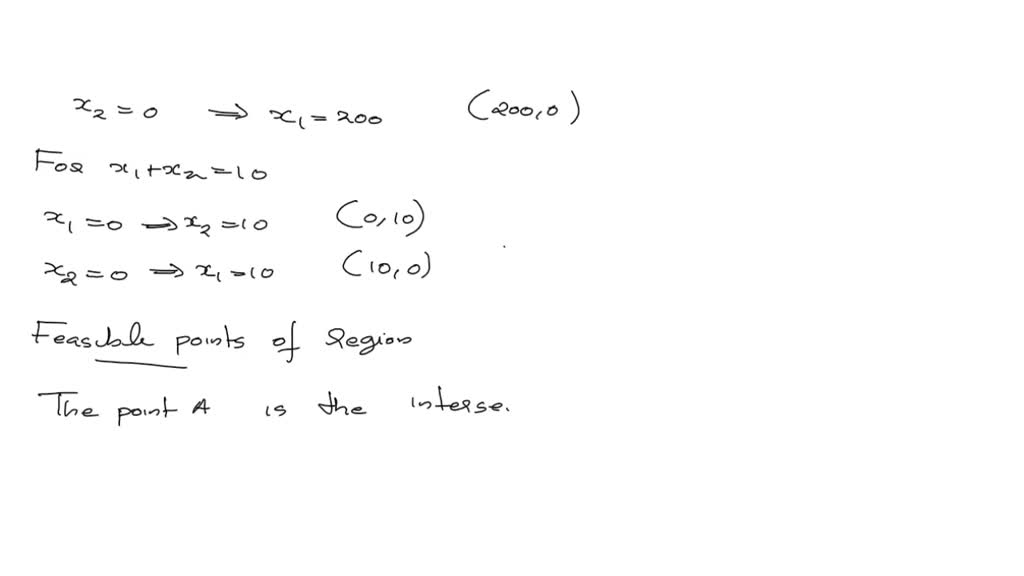 x₂ = 0 ⇒ x₁ = 200 (200,0)
For x₁+x₂ = 10
x₁ = 0 ⇒ x₂ = 10 (0,10)
x₂ = 0 ⇒ x₁ = 10 (10,0)
Feasible points of Region
The point A is the interse.